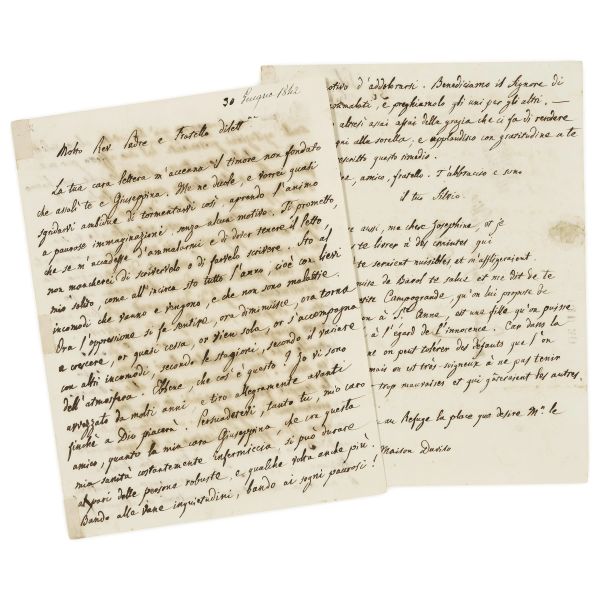 30 Giugno 1842
Molto Rev. Padre e Fratello dilett.mo
La tua cara lettera m'accenna il timore non fondato
che avete te e Giuseppina. Me ne duole, e vorrei quasi
sgridarvi ambidue di tormentarvi così aprendo l'animo
a paurose immaginazioni, senza alcun motivo. Ti prometto,
che se m'accadesse d'ammalarmi e di dover tenere il letto
non mancherei di scrivertelo o di fartelo scrivere. Sto al
mio solito, come all'incirca sto tutto l'anno, cioè con lievi
incomodi che vanno e vengono, e che non sono malattie.
Ora l'oppressione si fa sentire, ora diminuisce, ora torna
a crescere, or quasi cessa, or vien sola, or s'accompagna
con altri incomodi, secondo le stagioni, secondo il variare
dell'atmosfera. Ebbene, che cos'è questo? Io vi sono
avvezzato da molti anni, e tiro allegramente avanti
finchè a Dio piacerà. Persuadetevi, tanto tu, mio caro
amico, quanto la mia cara Giuseppina, che con questa
mia sanità costantemente infermiccia, si può durare
al pari delle persone robuste, e qualche volta anche più.
Bando alle vane inquietudini, bando ai sogni paurosi!
motivo d'addolorarsi. Benediciamo il Signore di
e preghiamolo gli uni per gli altri. —
altresì assai assai della grazia che ci fa di rendere
alla sorella, e applaudisco con gratitudine a te
questo rimedio.
amico, fratello. T'abbraccio e sono
il tuo Silvio.
aussi, ma chère Josephine, or je
te livrer à des craintes qui
seraient nuisibles et m'affligeraient.
de Barol te salue et me dit de te
Campogrande, qu'on lui propose de
à S.te Anne, est une fille qu'on puisse
à l'égard de l'innocence. Car dans la
on peut tolérer des défauts que l'on
mais on est très soigneux à ne pas tenir
trop mauvaises et qui gâteraient les autres.
au Refuge la place que desire M.r le
Maison Daviso